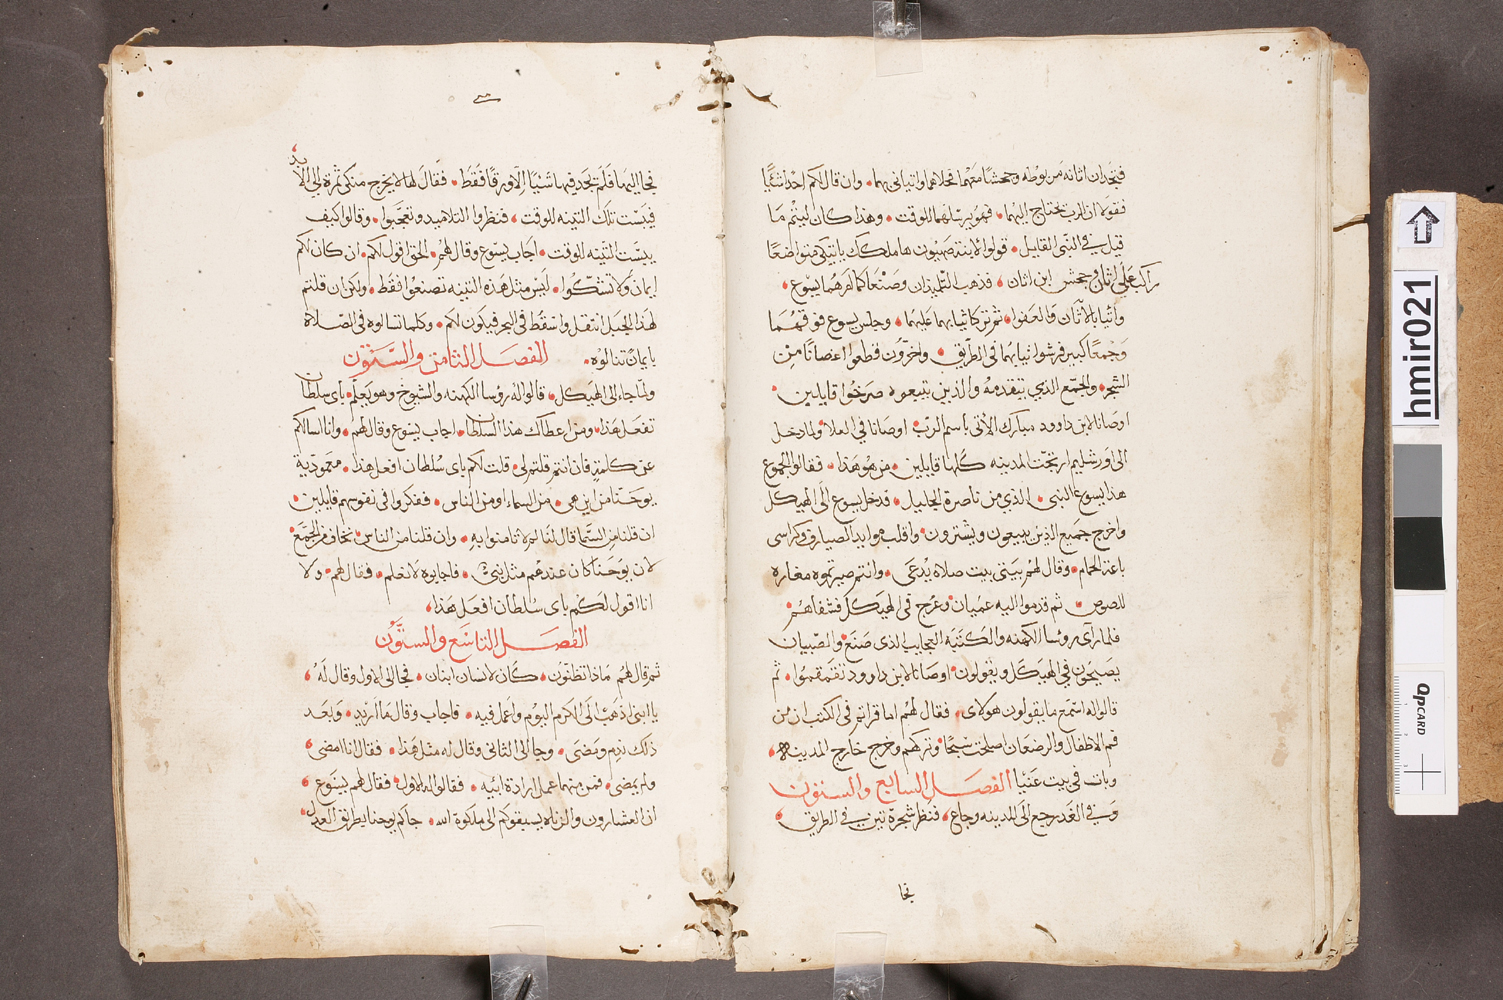 فتجدان اتانه مربوطه وجحشًا معها فحلاهما واتياني بهما وان قال لكم احدا شيًا
فقولا ان الرب يحتاج اليهما فهو يرسلهما للوقت وهذا كان ليتم ما
قيل في النبي القايل قولوا لابنة صهيون ها ملكك ياتيكي متواضعًا
راكب على اتان وجحش ابن اتان فذهب التلميذان وصنعا كما امرهما يسوع
واتيا بالاتان والعفوا وتركا ثيابهما عليهما وجلس يسوع فوقهما
وجمعًا كبير فرشوا ثيابهم في الطريق واخرون قطعوا اغصانًا من
الشجر والجمع الذي يتقدمه والذين يتبعوه صرخوا قايلين
اوصانا لابن داوود مبارك الاتي باسم الرب اوصانا في العلا ولما دخل
الى اورشليم ارتجت المدينه كلها قايلين من هو هذا فقالوا الجموع
هذا يسوع النبي الذي من ناصرة الجليل فدخل يسوع الى الهيكل
واخرج جميع الذين يبيعون ويشترون واقلب موايد الصيارف وكراسي
باعة الحمام وقال لهم بيتي بيت صلاه يدعى وانتم صيرتموه مغاره
للصوص ثم قدموا اليه عميان وعرج في الهيكل فشفاهم
فلما راى روسا الكهنه والكتبه العجايب الذي صنع والصبيان
يصيحون في الهيكل ويقولون اوصانا لابن داوود تقمقموا ثم
قالوا له استمع ما يقولون هولاى فقال لهم اما قراتم في الكتب ان من
فم الاطفال والرضعان اصلحت سبحًا وتركهم وخرج خارج المدينه
وبات في بيت عنيا الفصل السابع والستون
وفي الغد رجع الى المدينه وجاع فنظر شجرة تين في الطريق
نجا
نجا اليها فلم يجد فيها شيًا الا ورقًا فقط فقال لها لا يخرج منكي ثمرة الى الابد
فيبست تلك التينه للوقت فنظروا التلاميد وتعجبوا وقالوا كيف
يبست التينه للوقت اجاب يسوع وقال لهم الحق اقول لكم ان كان لكم
ايمان ولا تشكوا ليس مثل هذه التينه تصنعوا فقط ولكن ان قلتم
لهذا الجبل انتقل واسقط في البحر فيكون لكم وكلما تسالوه في الصلاة
بايمان تنالوه الفصل الثامن والستون
ولما جاء الى الهيكل قالوا له روسا الكهنه والشيوخ وهو يعلم باي سلطان
تفعل هذا ومن اعطاك هذا السلطان اجاب يسوع وقال لهم وانا اسالكم
عن كلمة فان انتم قلتم لي قلت لكم باي سلطان افعل هذا معمودية
يوحنا من اين هي من السماء او من الناس ففكروا في نفوسهم قايلين
ان قلنا من السما قال لنا لم لا تامنوا به وان قلنا من الناس نخاف من الجمع
لان يوحنا كان عندهم مثل نبي فاجابوه لا نعلم فقال لهم ولا
انا اقول لكم باي سلطان افعل هذا
الفصل التاسع والستون
ثم قال لهم ماذا تظنون كان لانسان ابنان فجا الى الاول وقال له
يا ابني اذهب الى الكرم اليوم واعمل فيه فاجاب وقال ما اريد وبعد
ذلك ندم ومضى وجا الى الثاني وقال له مثل هذا فقال انا امضي
ولم يمضى فمن منهما عمل ارادة ابيه فقالوا له الاول فقال لهم يسوع
ان العشارون والزناه يسبقوكم الى ملكوة الله جاكم يوحنا بطريق العدل
hmir021
QPCARD